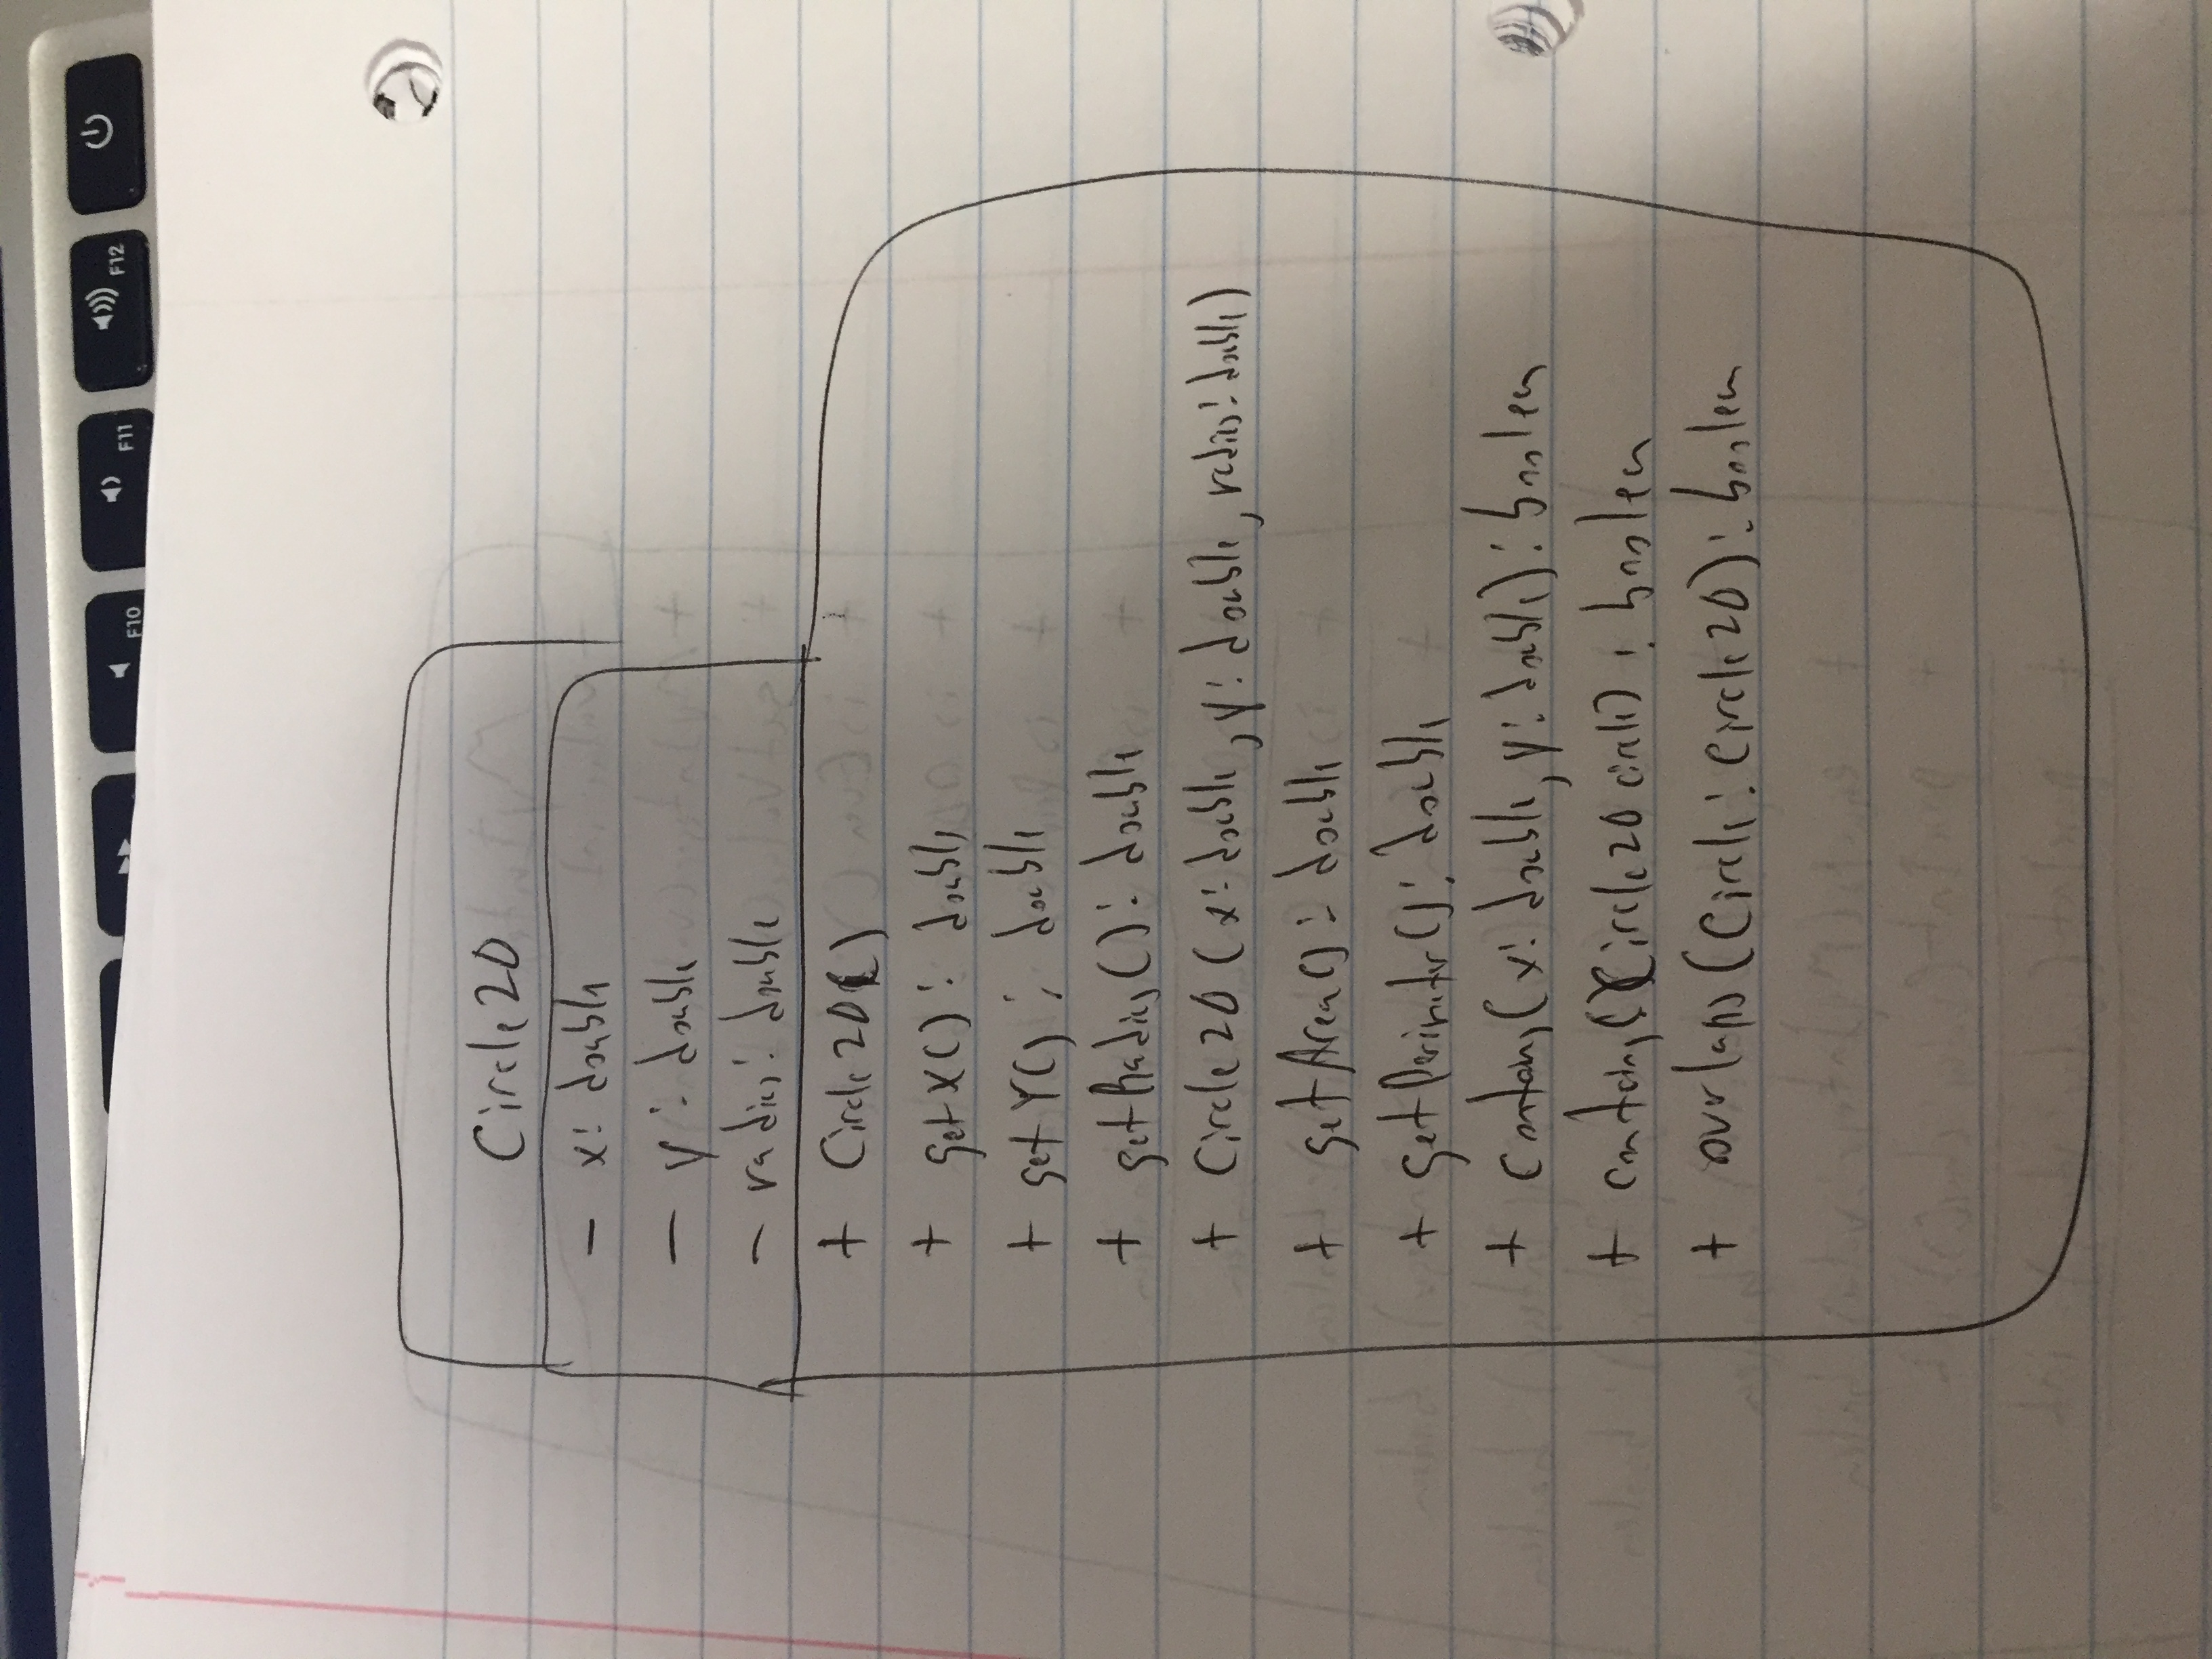 F10
F11
F12
Circle2D
- x: double
- y: double
- radius: double
+ Circle2D()
+ getX(): double
+ getY(): double
+ getRadius(): double
+ Circle2D(x: double, y: double, radius: double)
+ getArea(): double
+ getPerimeter(): double
+ contains(x: double, y: double): boolean
+ contains(Circle2D circle): boolean
+ overlaps(Circle: Circle2D): boolean